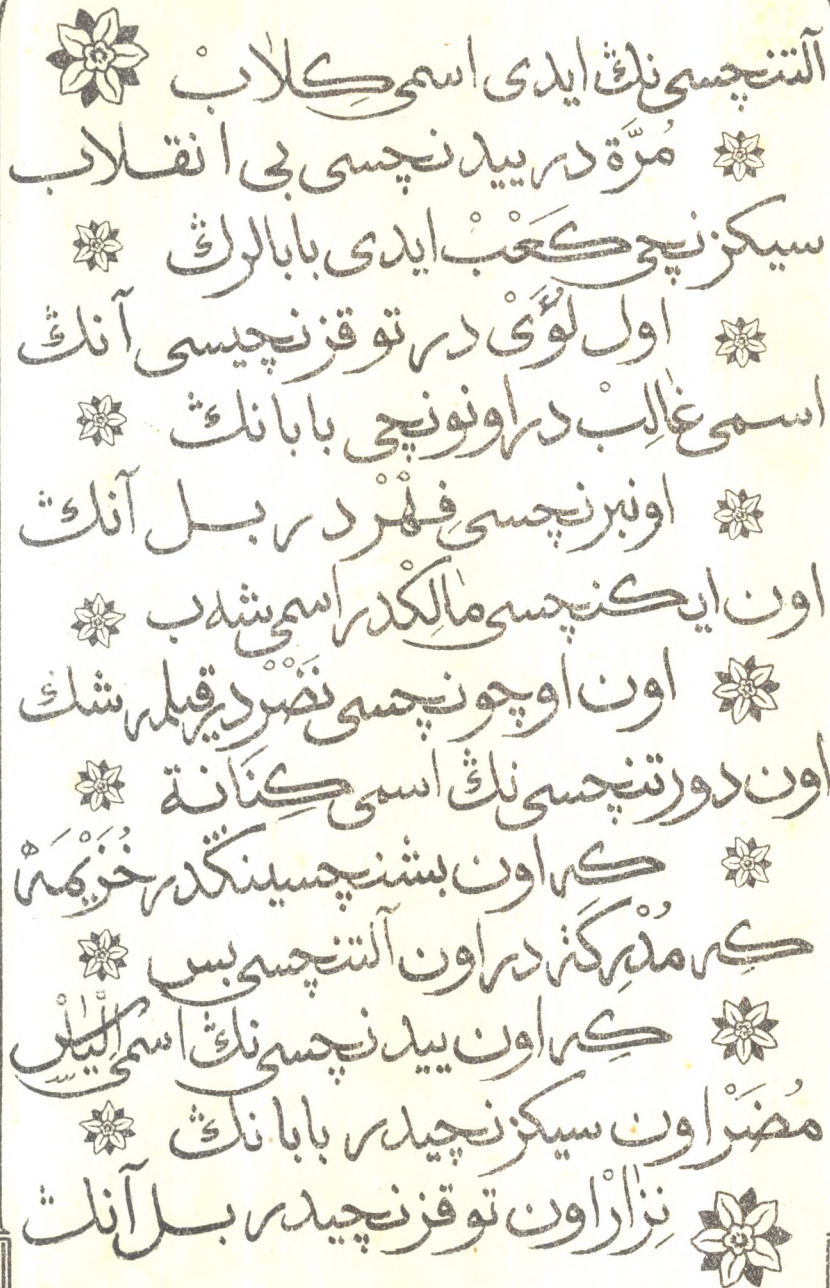 آلتنچسی‌نڭ ایدی اسمی کِلَابْ
مُرَّة در ییدنچسی بی انقلاب
سیکزنچی کَعَبْ ایدی بابالرڭ
اول لُؤَیْ در توقزنچیسی آنڭ
اسمی غَالِبْ در اونونچی بابانڭ
اونبرنچسی فِهْرْ در بــل آنڭ
اون ایکنچسی مَالِكْدر اسمی شه‌ب
اون اوچونچسی نَضْرْدیر قیلمه شك
اون دورتنچسی‌نڭ اسمی کِنَانة
که اون بشنچسینڭدر خُزَیْمَهْ
کِه مُدْرِکَة در اون آلتنچسی بس
کِه اون ییدنچسی‌نڭ اسمی اِلْیَاسْ
مُضَرْ اون سیکزنچیدر بابانڭ
نِزَارْ اون توقزنچیدر بــل آنڭ